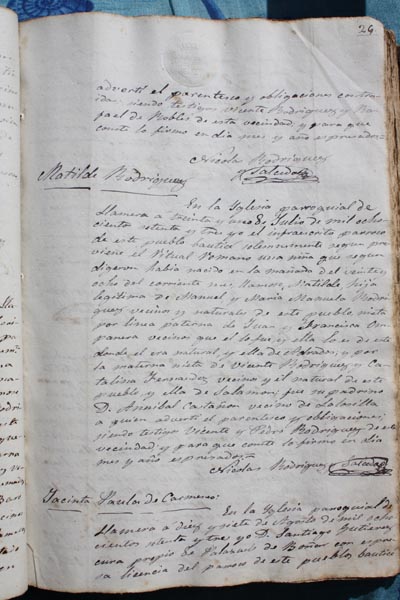 26
advertí el parentesco y obligaciones contra-
ida, siendo testigos Vicente Rodriguez y Ra-
fael de Robles de esta vecindad y para que
conste lo firmo en dia mes y año expresados=
Nicolas Rodriguez
Salcedo
Matilde Rodriguez
En la Yglesia parroquial de
Llamera a treinta y uno de Julio de mil ocho-
cientos setenta y tres yo el infraescrito parroco
de este pueblo bauticé solemnemente segun pre-
viene el Ritual Romano una niña que segun
digeron habia nacido en la mañana del veinte y
ocho del corriente mes, llamose, Matilde hija
legitima de Manuel y Maria Manuela Rodri-
guez vecinos y naturales de este pueblo nieta
por linea paterna de Juan y Francisca
vecinos que el lo fue y ella lo es de este
donde el era natural y ella de y por
la materna nieta de Vicente Rodriguez y Ca-
talina Fernandez vecinos y el natural de este
pueblo y ella de Salamon; fue su padrino
D. Annibal Castañon vecino de
a quien advertí el parentesco y obligaciones;
siendo testigos Vicente y Pedro Rodriguez de esta
vecindad y para que conste lo firmo en dia
mes y año expresados=
Nicolas Rodriguez Salcedo
Jacinta Paula de Casmeno
En la Yglesia parroquial de
Llamera a diez y siete de Agosto de mil ocho
cientos setenta y tres yo D. Santiago Gutierrez
cura propio de Palazuelo de Boñar con expre-
sa licencia del parroco de este pueblo bauticé